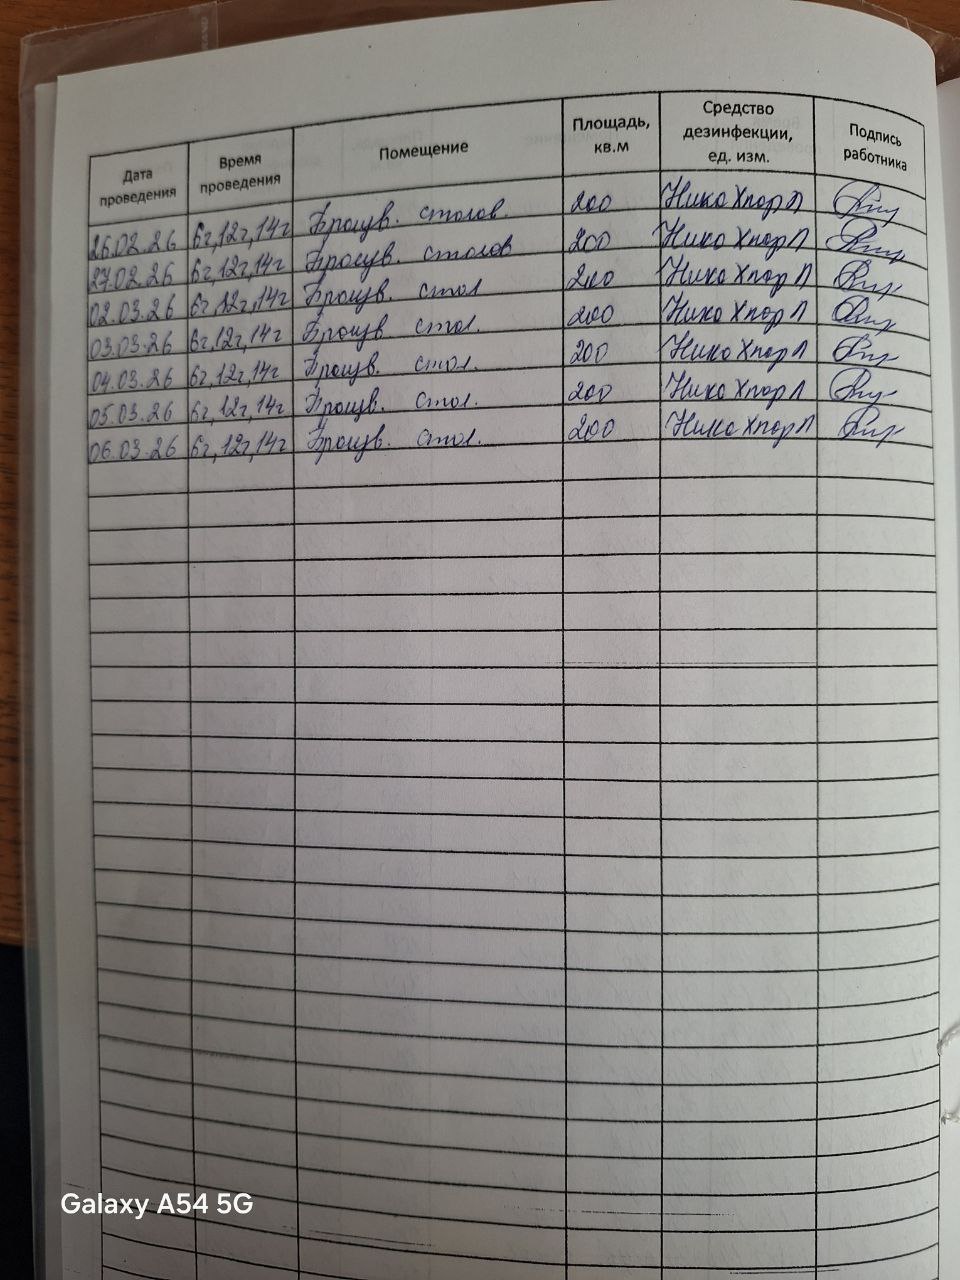 Дата проведения Время проведения Помещение Площадь, кв.м Средство дезинфекции, ед. изм. Подпись работника
26.02.26 6ч,12ч,14ч Произв. столов. 200 Нико Хлор Л
27.02.26 6ч,12ч,14ч Произв. столов 200 Нико Хлор Л
02.03.26 6ч,12ч,14ч Произв. стол 200 Нико Хлор Л
03.03.26 6ч,12ч,14ч Произв. стол. 200 Нико Хлор Л
04.03.26 6ч,12ч,14ч Произв. стол. 200 Нико Хлор Л
05.03.26 6ч,12ч,14ч Произв. стол. 200 Нико Хлор Л
06.03.26 6ч,12ч,14ч Произв. стол. 200 Нико Хлор Л
Galaxy A54 5G